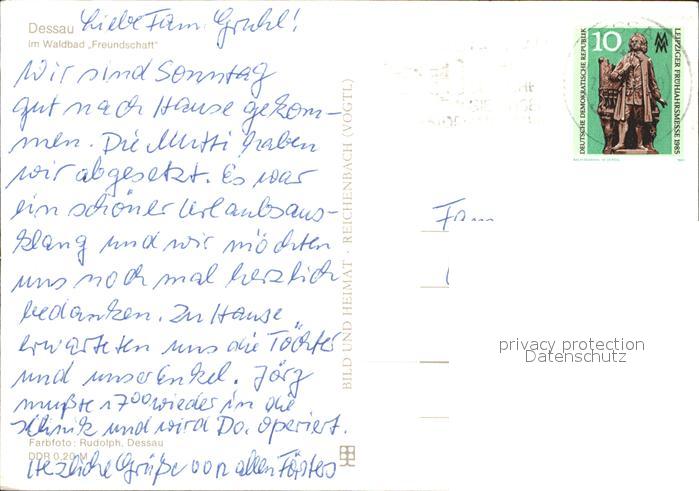 Liebe Fam. Gruhl!
Dessau
im Waldbad „Freundschaft"
Wir sind Sonntag
gut nach Hause gekom-
men. Die Mutti haben
wir abgesetzt. Es war
ein schöner Urlaubsaus-
klang und wir möchten
uns noch mal herzlich
bedanken. Zu Hause
erwarteten uns die Töchter
und unser Enkel. Jörg
mußte 17 00 wieder in die
Klinik und wird Do. operiert.
Farbfoto: Rudolph, Dessau
DDR 0,20 M
Herzliche Grüße von allen Försters
BILD UND HEIMAT · REICHENBACH (VOGTL)
10
DEUTSCHE DEMOKRATISCHE REPUBLIK
LEIPZIGER FRÜHJAHRSMESSE 1985
MM
Fam
privacy protection
Datenschutz